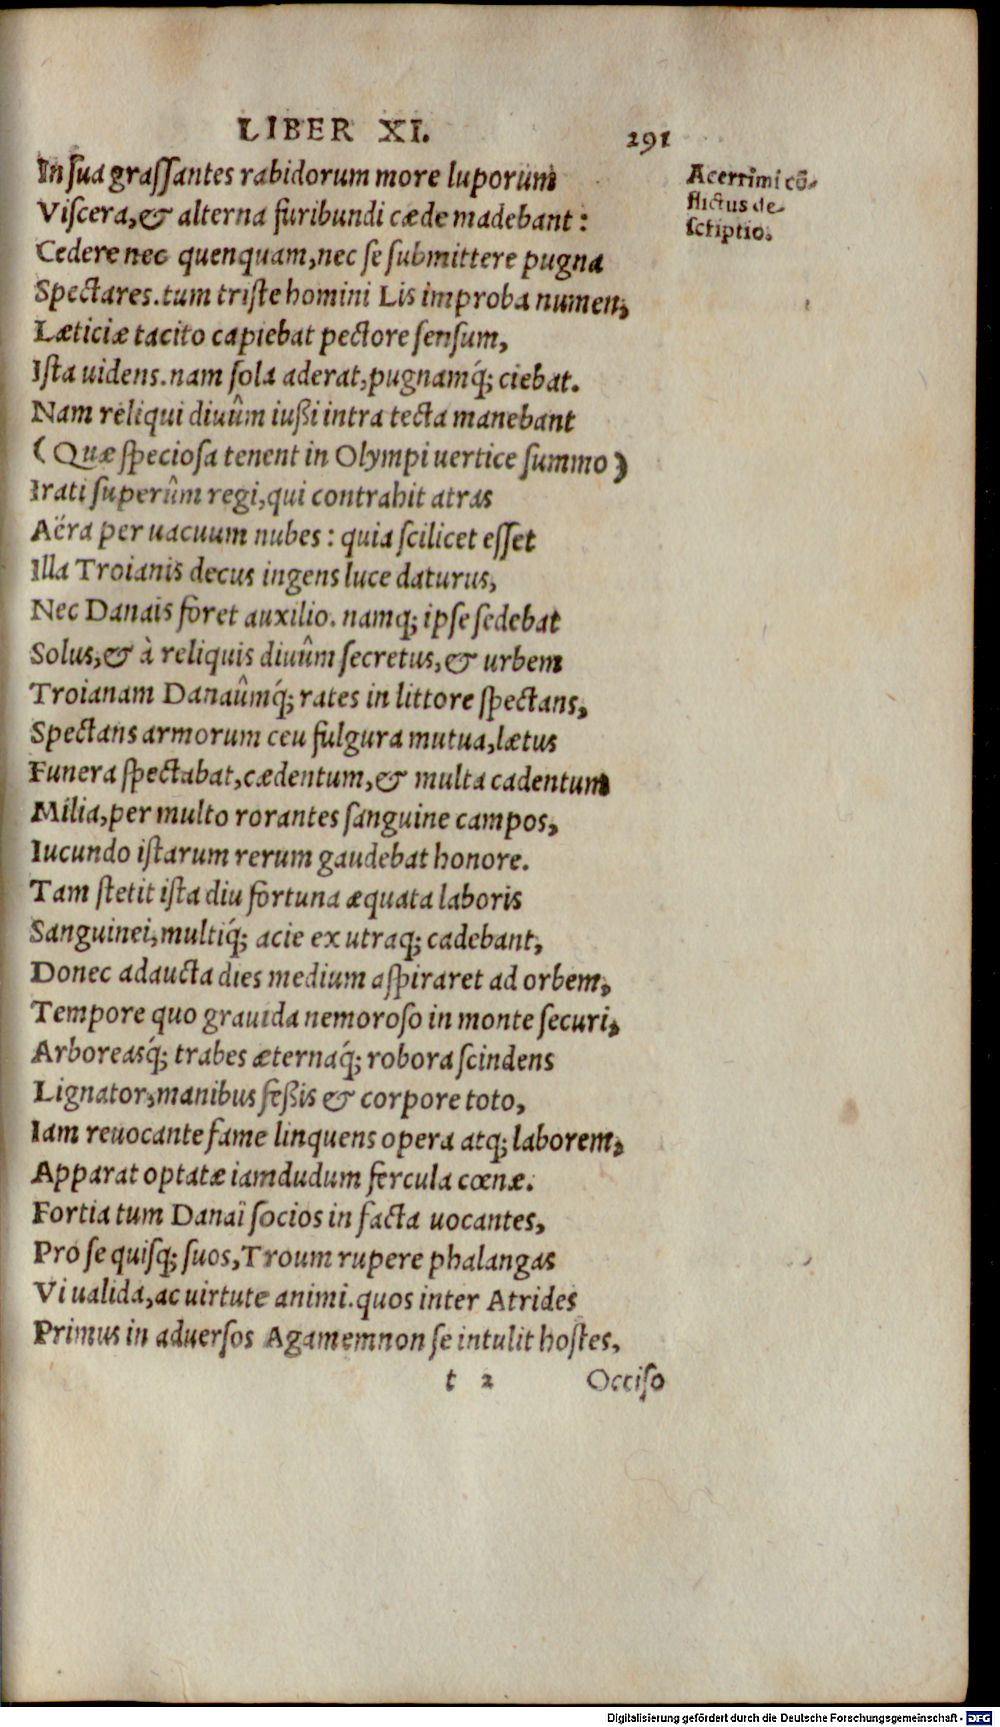 LIBER XI. 291
In sua grassantes rabidorum more luporum
Viscera, & alterna furibundi cæde madebant:
Cedere nec quenquam, nec se submittere pugna
Spectares. tum triste homini Lis improba numen,
Læticiæ tacito capiebat pectore sensum,
Ista uidens. nam sola aderat, pugnamq́; ciebat.
Nam reliqui diuûm iußi intra tecta manebant
(Quæ speciosa tenent in Olympi uertice summo)
Irati superûm regi, qui contrahit atras
Aëra per uacuum nubes: quia scilicet esset
Illa Troianis decus ingens luce daturus,
Nec Danais foret auxilio. namq; ipse sedebat
Solus, & à reliquis diuûm secretus, & urbem
Troianam Danaûmq́; rates in littore spectans,
Spectans armorum ceu fulgura mutua, lætus
Funera spectabat, cædentum, & multa cadentum
Milia, per multo rorantes sanguine campos,
Iucundo istarum rerum gaudebat honore.
Tam stetit ista diu fortuna æquata laboris
Sanguinei, multiq́; acie ex utraq; cadebant,
Donec adaucta dies medium aspiraret ad orbem,
Tempore quo grauida nemoroso in monte securi,
Arboreasq́; trabes æternaq́; robora scindens
Lignator, manibus feßis & corpore toto,
Iam reuocante fame linquens opera atq; laborem,
Apparat optatæ iamdudum fercula cœnæ.
Fortia tum Danai socios in facta uocantes,
Pro se quisq; suos, Troum rupere phalangas
Vi ualida, ac uirtute animi. quos inter Atrides
Primus in aduersos Agamemnon se intulit hostes,
t 2 Occiso
Acerrimi cõ-
flictus de-
scriptio.
Digitalisierung gefördert durch die Deutsche Forschungsgemeinschaft - DFG